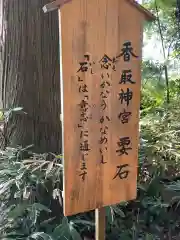 香取神宮 要石
念いかなう かなめいし
「石」は「意志」に通じます